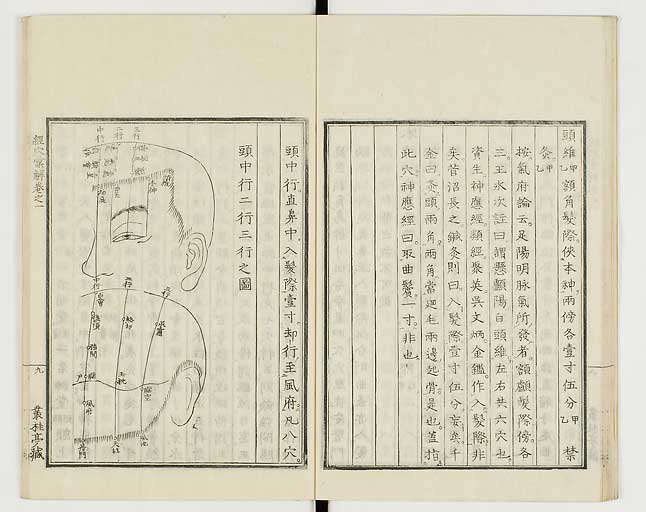 頭維甲乙額角髮際俠本神兩傍各壹寸伍分甲乙禁
灸甲乙
按氣府論云足陽明脉氣所發者額顱髮際傍各
三王氷次註曰謂懸顱陽白頭維左右共六穴也
資生神應經類經聚英吳文炳金鑑作入髮際非
矣菅沼長之鍼灸則曰入髮際壹寸伍分妄矣千
金曰灸頭兩角兩角當廻毛兩邊起骨是也蓋指
此穴神應經曰取曲鬢一寸非也
頭中行直鼻中入髮際壹寸却行至風府凡八穴
頭中行二行三行之圖
三行
二行
中行
本神
中行
二行
三行
強間
絡却
玉枕
腦空
風府
瘂門
天柱
風池
經穴纂解卷之一
九
叢桂亭藏